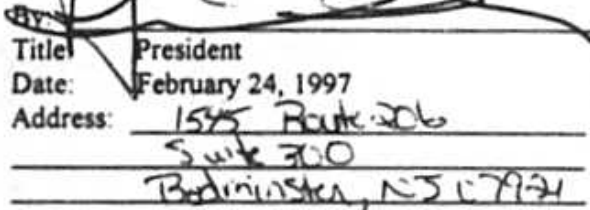 By:
Title: President
Date: February 24, 1997
Address: 1545 Route 206
Suite 300
Bedminster, NJ 07921